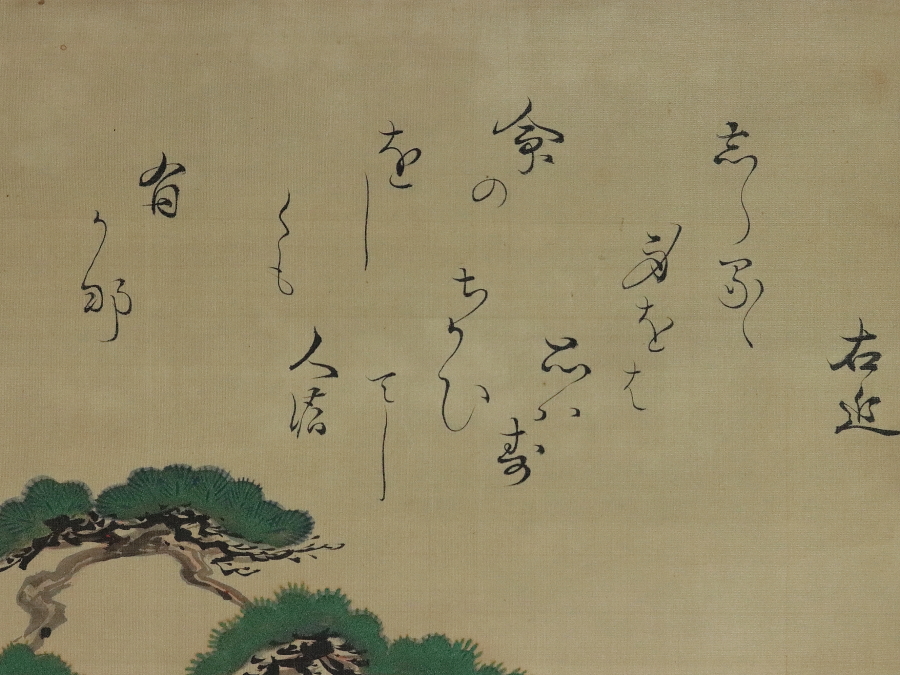 右近
忘らるゝ
身をは
思ハ寿
ちかひ
てし
人濃
命の
をし
くも
有
か那